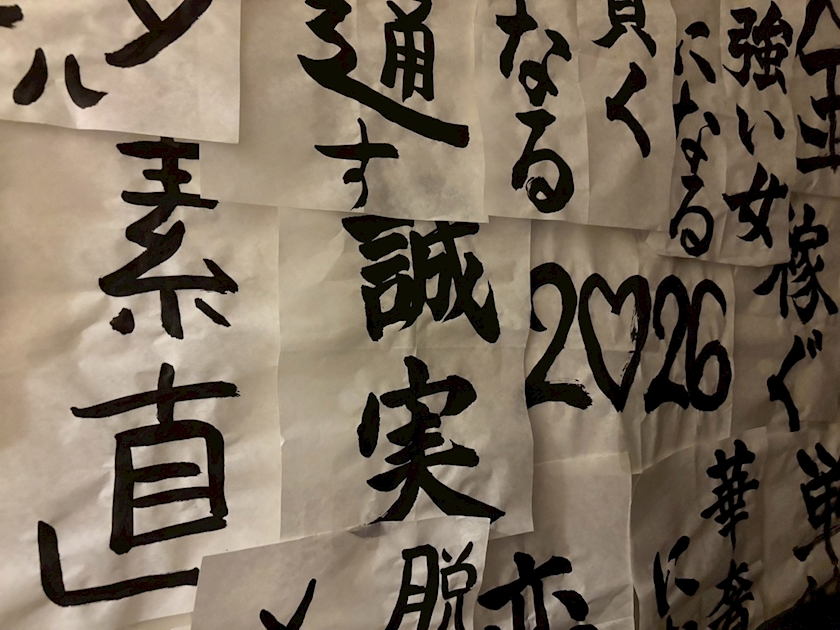 強い女
になる
く
なる
通す
稼ぐ
2♡26
誠実
素直
華奢
に
脱